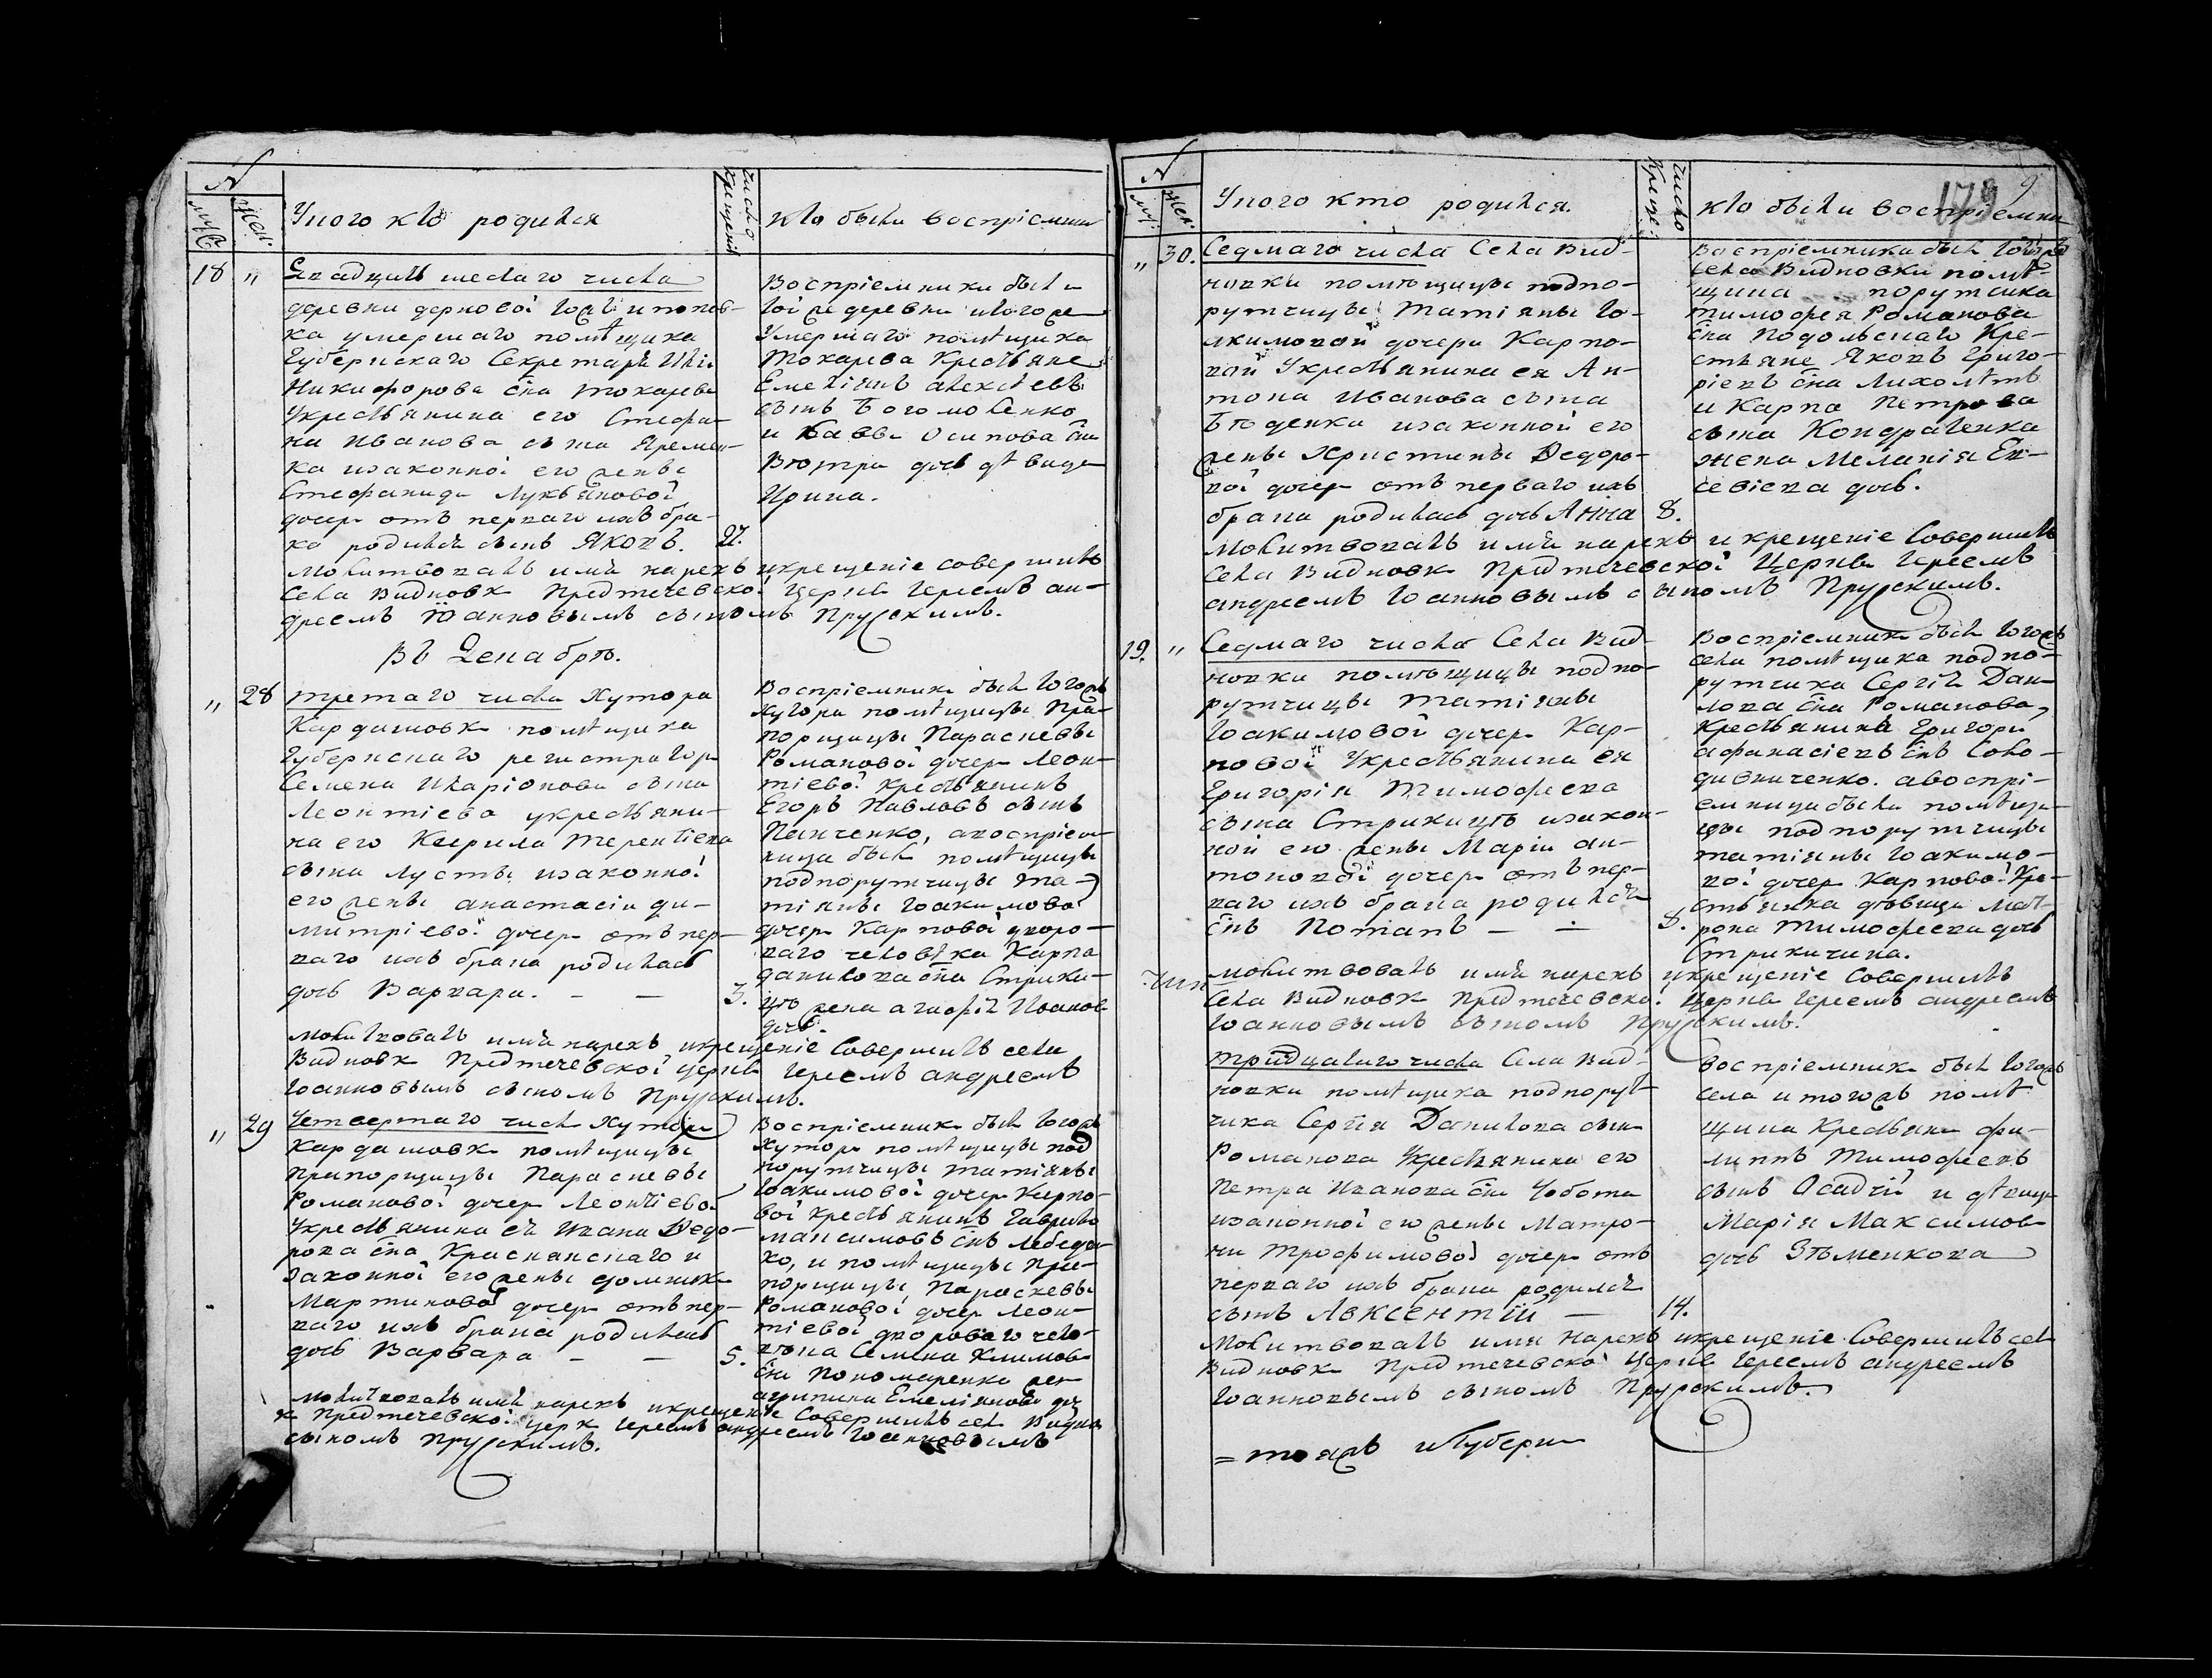 №
муж:
жен:
Укого кто родился
число крещенія
кто были воспріемники
18 "
двадцать шестаго числа
деревни дерновой
ка умершаго помѣщика
Губернскаго Секретаря
Никифорова сна Токарева
Укрестьянина его Стефа-
на Иванова сына Яремен-
ка изаконной его жены
Стефаниды Лукьяновой
дочери отъ перваго ихъ бра-
ка родился сынъ Яковъ. 27.
Воспріемники были
тойже деревни итогоже
Умершаго помѣщика
Токарева Крестьяне
Емеліянъ алексѣевъ
сынъ Богомоленко
и Осипова сна
дочь дѣвица
Ирина.
молитвовалъ имя нарекъ икрещеніе совершилъ
села Видновки Предтечевской Церкви Іереемъ ан-
дреемъ Іоанновымъ сыномъ Прускимъ.
Въ Декабрѣ.
" 28
третаго числа Хутора
Кардашовки помѣщика
Губернскаго регистратора
Семена Иларіонова сына
Леонтіева укрестьяни-
на его Кирила Терентіева
сына Лусты изаконной
его жены анастасіи ди-
митріевой дочери отъ пер-
ваго ихъ брака родилась
дочь Варвара. — — 3.
Воспріемникъ былъ тогожъ
хутора помѣщицы Пра-
порщицы Параскевы
Романовой дочери Леон-
тіевой крестьянинъ
Егоръ Павловъ сынъ
Панченко, авоспріем-
ница была помѣщицы
подпорутчицы Та-
тіяны Іоакимовой
дочери Карповой дворо-
ваго человѣка Карпа
данилова сна Стрижи-
цѣ жена агафія Иванова
дочь.
молитвовалъ имя нарекъ икрещеніе Совершилъ села
Видновки Предтечевской церкви Іереемъ андреемъ
Іоанновымъ сыномъ Прускимъ.
" 29
Четвертаго числа Хутора
Кардашовки помѣщицы
Прапорщицы Параскевы
Романовой дочери Леонтіевой
Укрестьянина ея Ивана Ѳедо-
рова сна Краснянскаго и
законной его жены домники
Мартиновой дочери отъ пер-
ваго ихъ брака родилась
дочь Варвара — — 5.
Воспріемникъ былъ тогожъ
хутора помѣщицы под
порутчицы татіяны
Іоакимовой дочери Карпо-
вой крестьянинъ Гаврило
максимовъ снъ Лебеден-
ко, и помѣщицы Пра-
порщицы Параскевы
Романовой дочери Леон-
тіевой двороваго чело-
вѣка Семена Климова
сна Пономаренка жена
агрипина Емеліянова дочь
молитвовалъ имя нарекъ икрещеніе Совершилъ села Видно
к Предтечевской церк Іереемъ андреемъ Іоанновымъ
сыномъ Прускимъ.
№
муж:
жен.
Укого кто родился.
число креще:
кто были воспріемники
179
9
" 30.
Седмаго числа Села Вид-
новки помѣщицы подпо-
рутчицы Татіяны Іо-
акимовой дочери Карпо-
вой Укрестьянина ея Ан-
тона Иванова сына
изаконной его
жены Христины Ѳедоро-
вой дочери отъ перваго ихъ
брака родилась дочь Анна 8.
Воспріемника былъ тогожъ
села Видновки помѣ-
щика порутчика
тимофея Романова
сна Подольскаго Кре-
стьяне Яковъ Григо-
ріевъ сна Лихолѣтъ
и Карпа Петрова
сына Кондратенка
жена Меланія Ев-
сѣвіева дочь.
Молитвовалъ имя нарекъ и крещеніе Совершилъ
Села Видновк Предтечевской Церкви Іереемъ
андреемъ Іоанновымъ сыномъ Прускимъ.
19. "
Седмаго числа Села Вид-
новки помѣщицы подпо-
рутчицы Татіяны
Іоакимовой дочери Кар-
повой Укрестьянина ея
Григорія Тимофеева
сына Стрижицѣ изакон-
ной его жены Маріи ан-
тоновой дочери отъ пер-
ваго ихъ брака родился
снъ Потапъ — — 8.
Воспріемникъ былъ тогожъ
села помѣщика подпо-
рутчика Сергія Дани-
лова сна Романова,
крестьянинъ Григори
афанасіевъ снъ Соло-
дивниченко. авоспрі-
емница была помѣщи-
цы подпорутчицы
татіяны Іоакимо-
вой дочери Карповой Кре-
стьянка дѣвица Мат-
рона Тимофеева дочь
Стрижичина.
молитвовалъ имя нарекъ икрещеніе Совершилъ
Села Видновк Предтечевской Церкви Іереемъ андреемъ
Іоанновымъ сыномъ Прускимъ.
тридцатаго числа Села Вид-
новки помѣщика подпорут-
чика Сергія Данилова сына
Романова Укрестьянина его
Петра Иванова сна Чобота
изаконной его жены Матро-
ни Трофимовой дочери отъ
перваго ихъ брака родился
сынъ Авксентій — 14.
воспріемник былъ тогожъ
села итогожъ помѣ-
щика Крестьянинъ фи-
липпъ Тимофеевъ
сынъ Осадчій и дѣвица
Марія Максимова
дочь Зѣменкова
Молитвовалъ имя нарекъ икрещеніе Совершилъ села
Видновк Предтечевской Церкви Іереемъ андреемъ
Іоанновымъ сыномъ Прускимъ.
= тояжъ иГуберни